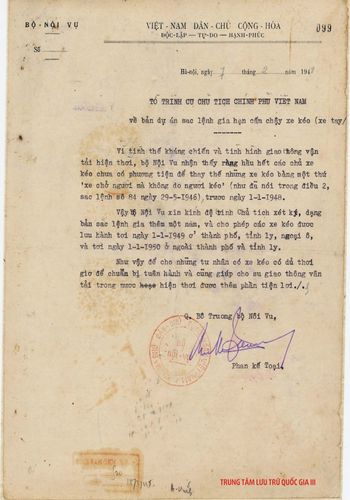 BỘ-NỘI VỤ
VIỆT-NAM DÂN-CHỦ CỘNG-HÒA
099
ĐỘC-LẬP — TỰ-DO — HẠNH-PHÚC
Số
Hà-nội, ngày 7 tháng 2 năm 194
TỜ TRÌNH CỤ CHỦ TỊCH CHÍNH PHỦ VIỆT NAM
về bản dự án sắc lệnh gia hạn cấm chạy xe kéo (xe tay/
Vì tình thế kháng chiến và tình hình giao thông vận
tải hiện thời, bộ Nội Vụ nhận thấy rằng hầu hết các chủ xe
kéo chưa có phương tiện để thay thế những xe kéo bằng một thứ
"xe chở người mà không do người kéo" (như đã nói trong điều 2,
sắc lệnh số 84 ngày 29-5-1946), trước ngày 1-1-1948.
Vậy bộ Nội Vụ xin kính đệ trình Chủ Tịch xét ký, dạng
bản sắc lệnh gia thêm một năm, và cho phép các xe kéo được
lưu hành tới ngày 1-1-1949 ở thành phố, tỉnh lỵ, ngoại ô,
và tới ngày 1-1-1950 ở ngoài thành phố và tỉnh lỵ.
Như vậy để cho những tư nhân có xe kéo có đủ thời
giờ để chuẩn bị tuân hành và cũng giúp cho sự giao thông vận
tải trong nước hiện thời được thêm phần tiện lợi./.
Q. Bộ Trưởng bộ Nội Vụ,
Phan kế Toại
TRUNG TÂM LƯU TRỮ QUỐC GIA III